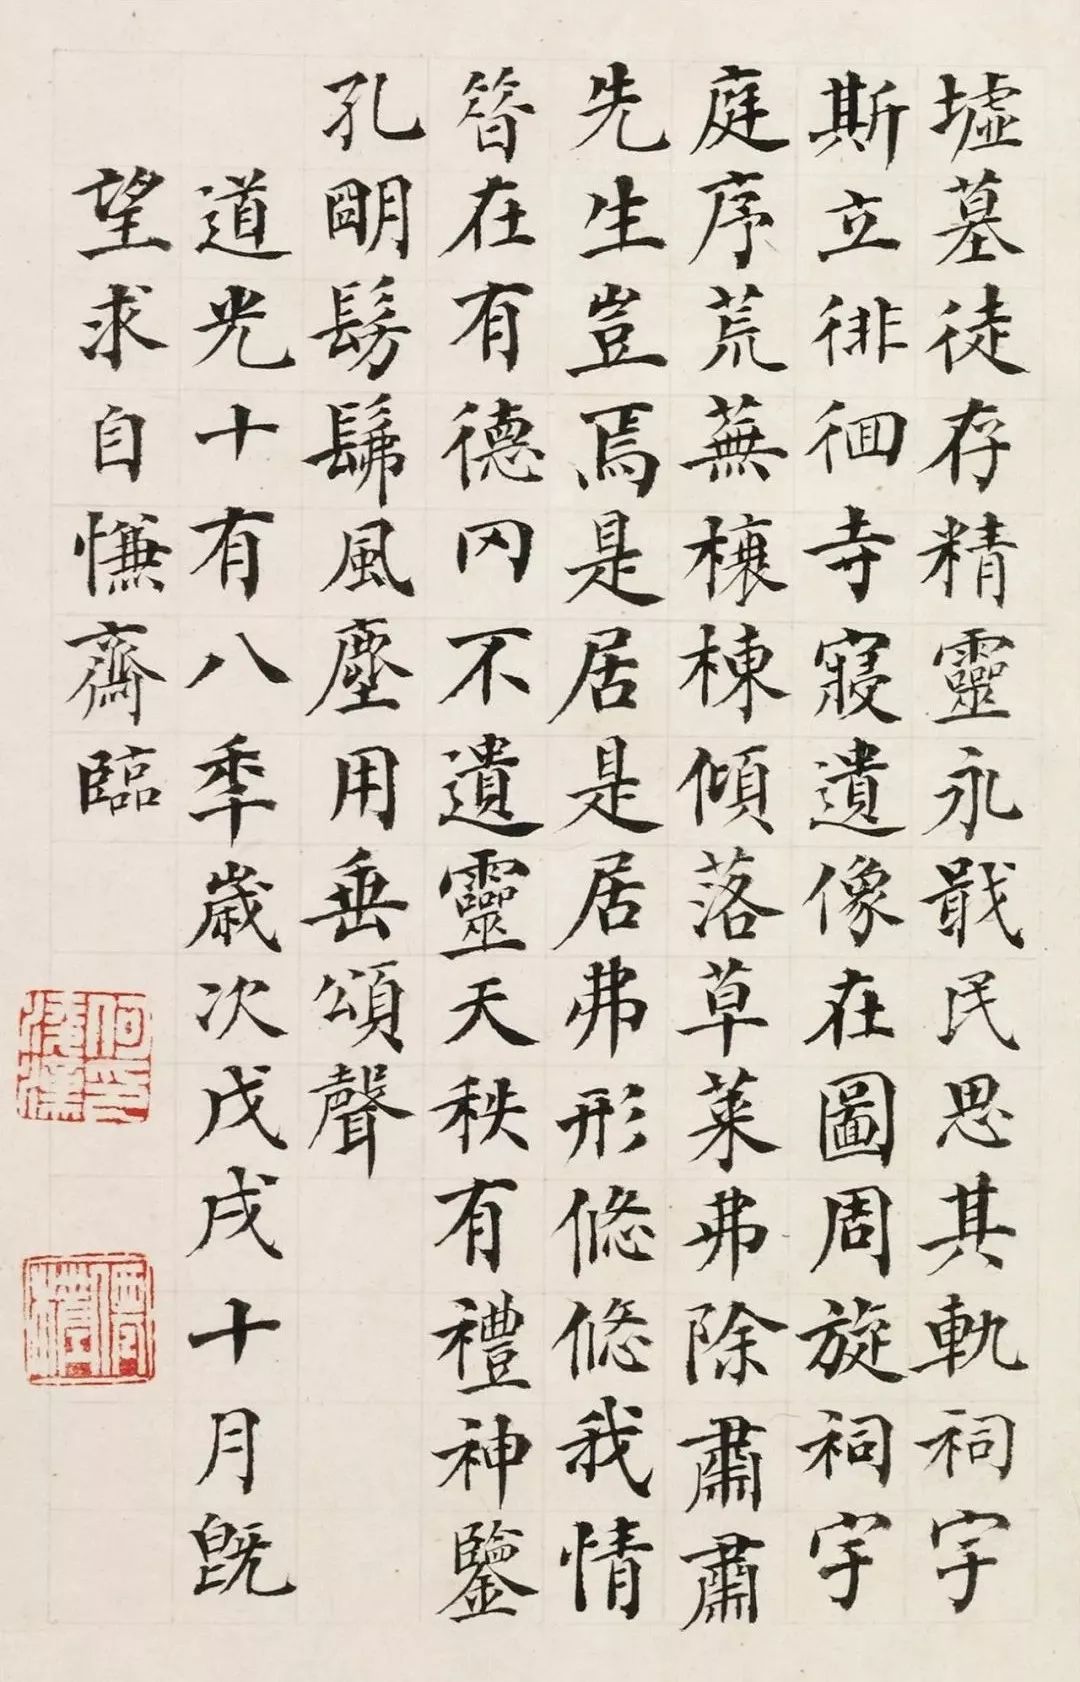 墟墓徒存精靈永戢民思其軌祠宇
斯立徘徊寺寢遺像在圖周旋祠宇
庭序荒蕪榱棟傾落草萊弗除肅肅
先生豈焉是居是居弗形悠悠我情
昔在有德罔不遺靈天秩有禮神鑒
孔朙髣髴風塵用垂頌聲
道光十有八秊歲次戊戌十月既
望求自慊齋臨
何印淩漢
僊槎